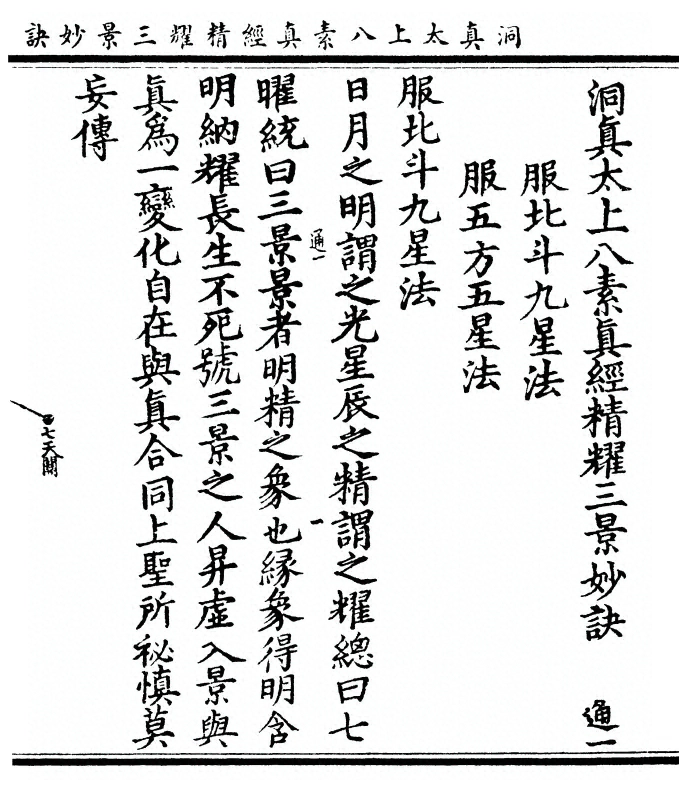 洞真太上八素真經精耀三景妙訣
洞眞太上八素眞經精耀三景妙訣　通一
服北斗九星法
服五方五星法
服北斗九星法
日月之明謂之光星辰之精謂之耀總曰七
曜統曰三景景者明精之象也緣象得明含
通一
明納耀長生不死號三景之人昇虛入景與
眞爲一變化自在與眞合同上聖所祕慎莫
妄傳
七天關